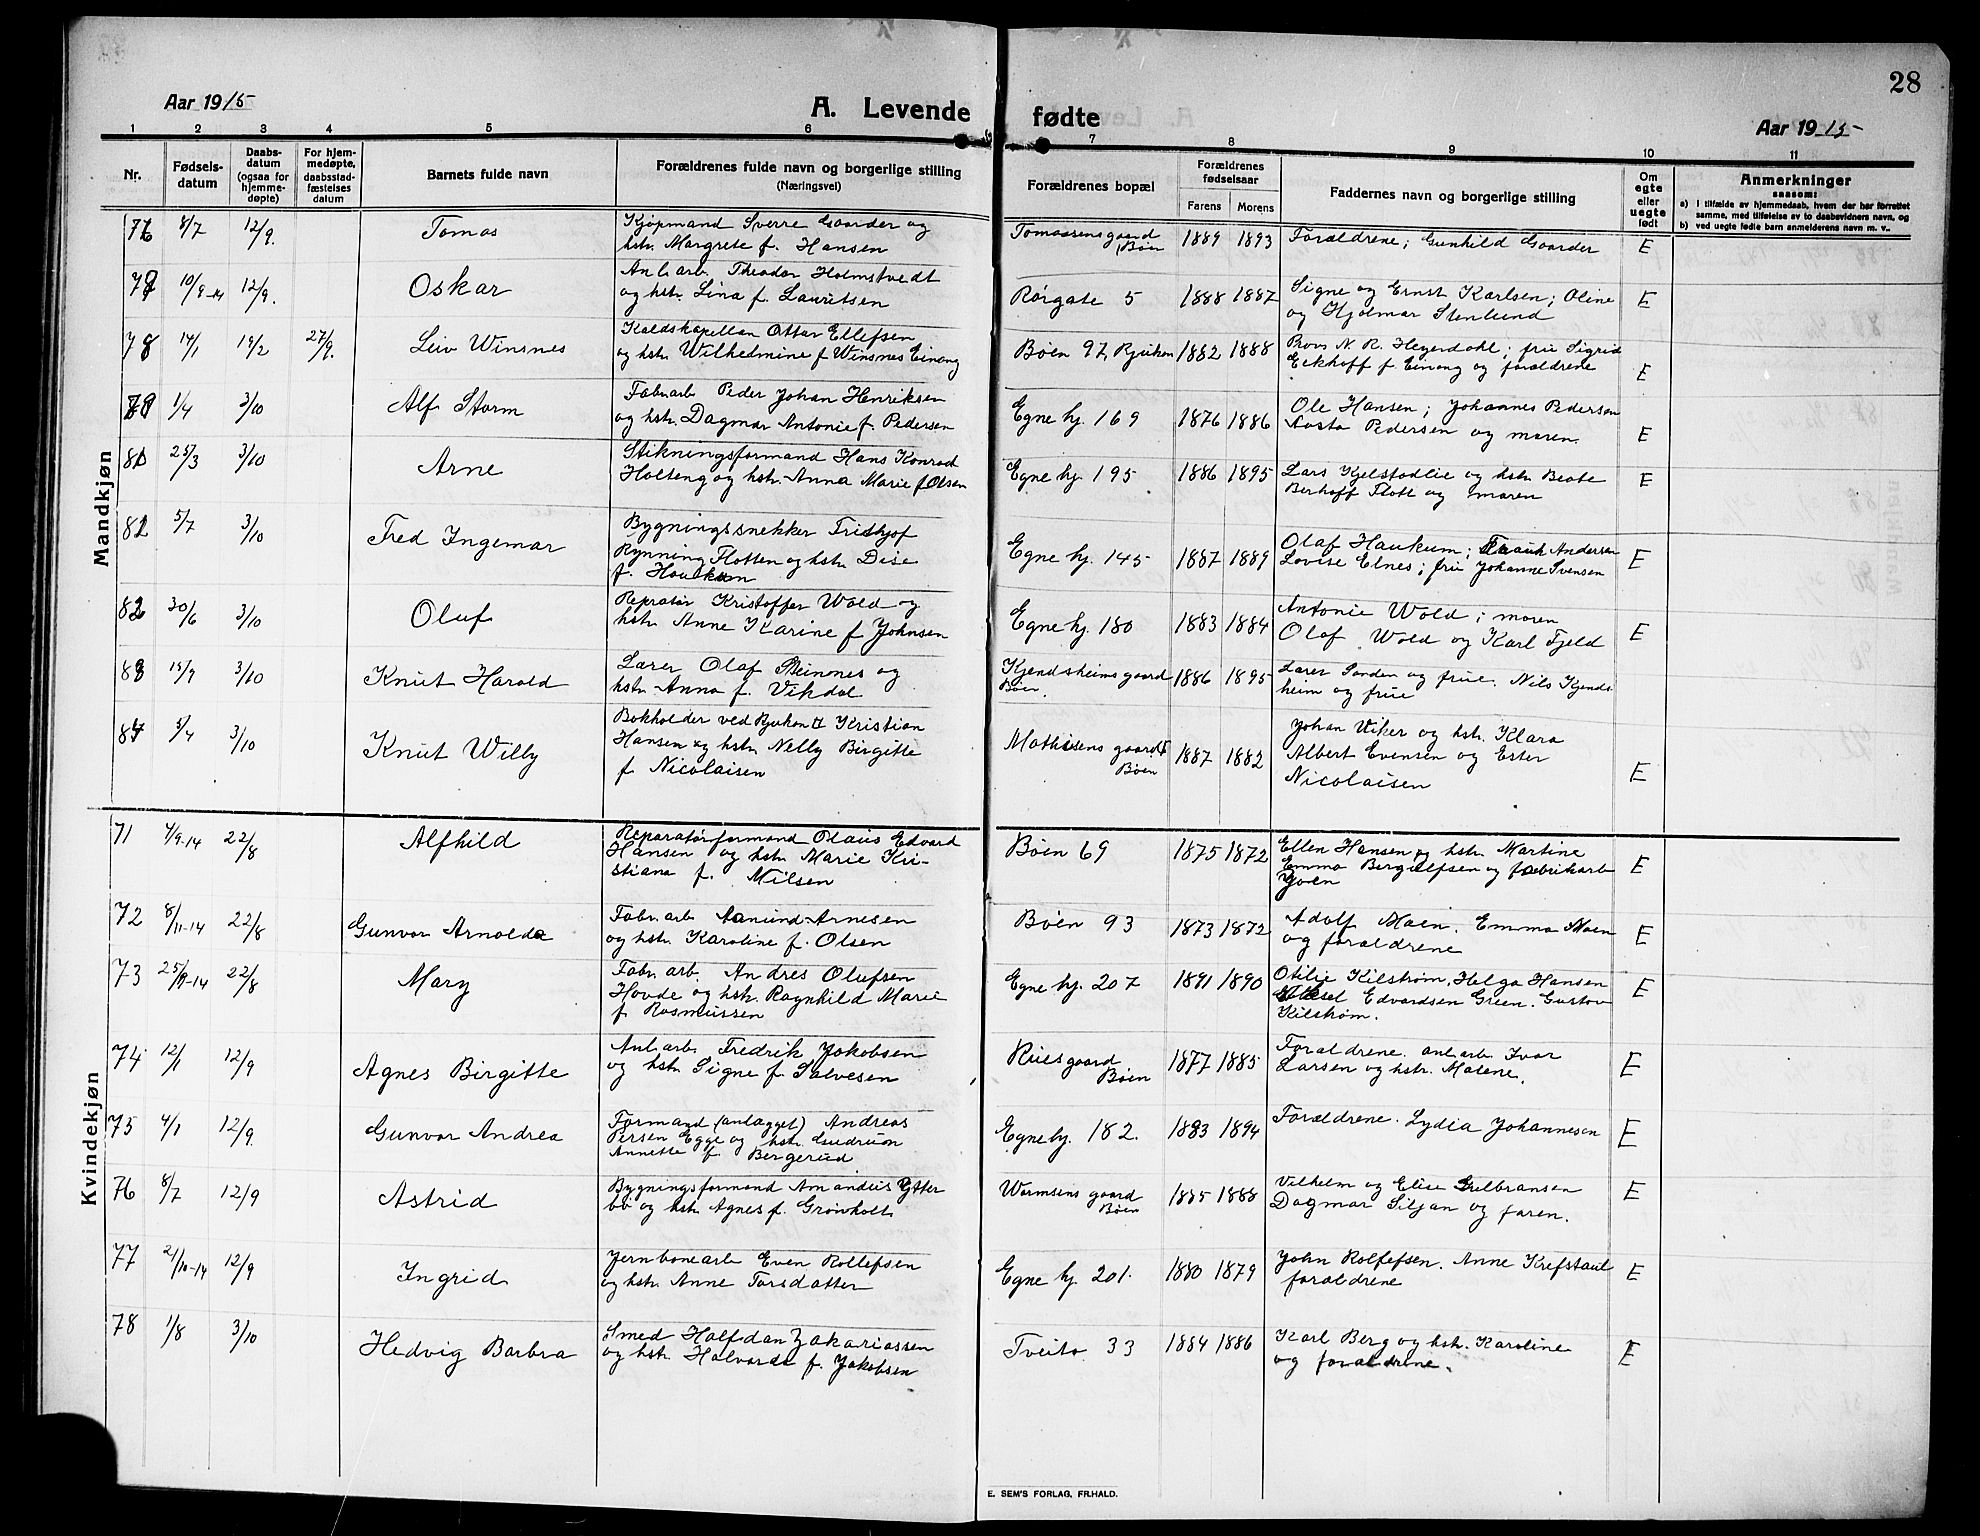 28
Aar 1915
A. Levende fødte
Aar 1915
1 2 3 4 5 6 7 8 9 10 11
Nr. Fødsels-datum Daabs-datum (ogsaa for hjemme-døpte) For hjem-medøpte, daabsstad-fæstelses datum Barnets fulde navn Forældrenes fulde navn og borgerlige stilling (Næringsvei) Forældrenes bopæl Forældrenes fødselsaar Farens Morens Faddernes navn og borgerlige stilling Om egte eller uegte født Anmerkninger saasom: a) I tilfælde av hjemmedaab, hvem der har forrettet samme, med tilføielse av to daabsvidners navn, og b) ved uegte fødte barn anmelderens navn m. v.
Mandkjøn
76 8/7 12/9. Tomas Kjøpmand Sverre Gaarder og hstr. Margrete f. Hansen Tomassens gaard Bøen 1889 1893 Forældrene; Gunhild Gaarder E
77 10/9-14 12/9. Oskar Anl. arb. Theodor Holmstvedt og hstr. Lina f. Lauritsen Rørgate 5 1888 1887 Signe og Ernst Karlsen; Oline og Hjalmar Stenlund E
78 14/1 19/2 27/9. Leiv Winsnes Kaldskapellan Ottar Ellefsen og hstr. Wilhelmine f. Winsnes Einong Bøen 97, Rjukan 1882 1888 Prov. N. R. Heyerdahl; fru Sigrid Eckhoff f. Einong og forældrene E
79 1/4 3/10 Alf Storm Fabr.arb. Peder Johan Henriksen og hstr. Dagmar Antonie f. Pedersen Egne hj. 169 1876 1886 Ole Hansen; Johannes Pedersen Aasta Pedersen og moren. E
80 25/3 3/10 Arne Stikningsformand Hans Konrad Holteng og hstr. Anna Marie f. Olsen Egne hj. 195 1886 1895 Lars Kjelstadlie og hstr. Beate Berhoff Flott og moren E
81 5/7 3/10 Fred Ingemar Bygningssnekker Fritjof Rynning Flotten og hstr. Dise f. Haukum Egne hj. 145 1887 1889 Olaf Haukum; Andersen Lovise Elnes; fru Johanne Svensen E
82 30/6 3/10 Oluf Repratør Kristoffer Wold og hstr. Anne Karine f. Johnsen Egne hj. 180 1883 1884 Antonie Wold; moren Olaf Wold og Karl Fjeld E
83 15/9 3/10 Knut Harald Lærer Olaf Steinnes og hstr. Anna f. Vikdal Kjendsheims gaard Bøen. 1886 1895 Lærer Sanden og frue. Nils Kjendsheim og frue
84 5/4 3/10 Knut Willy Bokholder ved Rjukan II Kristian Hansen og hstr. Nelly Birgitte f. Nicolaisen Mathisens gaard Bøen 1887 1882 Johan Viker og hstr. Klara Albert Evensen og Ester Nicolaisen E
Kvindekjøn
71 4/9-14 22/8 Alfhild Reparatørformand Olaus Edvard Hansen og hstr. Marie Kristiana f. Nilsen Bøen 69 1875 1872 Ellen Hansen og hstr. Martine Emma Bergulfsen og fabrikarb. Joen E
72 8/11-14 22/8 Gunvor Arnolda Fabr. arb. Amund Arnesen og hstr. Karoline f. Olsen Bøen 93 1873 1872 Adolf Moen. Emma Moen og forældrene E
73 25/9-14 22/8 Mary Fabr. arb. Andres Olufsen Hovde og hstr. Ragnhild Marie f. Rasmussen Egne hj. 207 1891 1890 Otilie Kilstrøm, Helga Hansen Edvardsen Green. Gustav Kilstrøm. E
74 12/1 12/9 Agnes Birgitte Anl. arb. Fredrik Jakobsen og hstr. Signe f. Salvesen Riisgaard Bøen 1877 1885 Forældrene. anl. arb. Ivar Larsen og hstr. Matene. E
75 4/1 12/9. Gunvor Andrea Formand (anlægget) Andreas Persen Egge og hstr. Gudrun Annette f. Bergerud Egne hj. 182. 1883 1894 Forældrene. Lydia Johannesen E
76 8/7 12/9 Astrid Bygningsformand Amandus Ytterbø og hstr. Agnes f. Grønholt Wormsens gaard Bøen 1885 1888 Vilhelm og Elise Gulbransen Dagmar Siljan og faren. E
77 21/10-14 12/9 Ingrid Jernbanearb. Even Rollefsen og hstr. Anne Torsdatter Egne hj. 201. 1880 1879 John Rolfefsen. Anne Krefstaul forældrene E
78 1/8 3/10 Hedvig Barbra Smed Halfdan Zakariassen og hstr. Halvarda f. Jakobsen Tveito 33 1884 1886 Karl Berg og hstr. Karoline og forældrene. E
E. SEM'S FORLAG, FR.HALD.